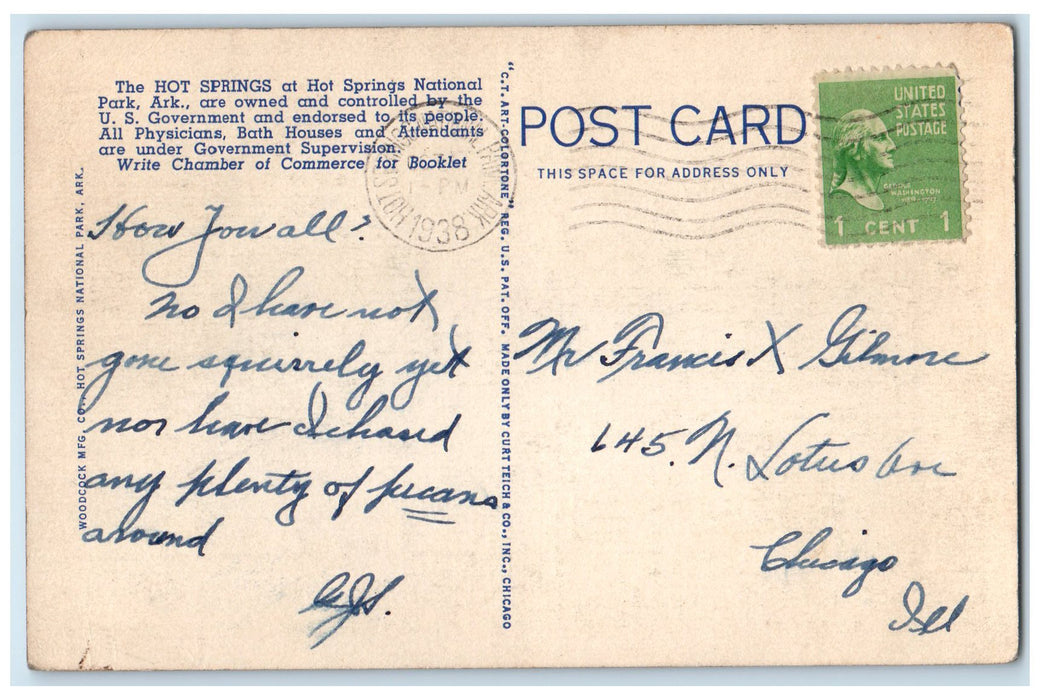 The HOT SPRINGS at Hot Springs National
Park, Ark., are owned and controlled by the
U. S. Government and endorsed to its people.
All Physicians, Bath Houses and Attendants
are under Government Supervision.
Write Chamber of Commerce for Booklet
WOODCOCK MFG. CO., HOT SPRINGS NATIONAL PARK, ARK.
How You all?
No I have not
gone squirrely yet
nor have I chased
any plenty of pecans
around
G.J.S.
"C.T. ART-COLORTONE" REG. U.S. PAT. OFF. MADE ONLY BY CURT TEICH & CO., INC., CHICAGO
POST CARD
THIS SPACE FOR ADDRESS ONLY
PM
1938
UNITED
STATES
POSTAGE
GEORGE
WASHINGTON
1 CENT 1
Mr Francis X Gilmore
145. N. Lotus Ave
Chicago
Ill